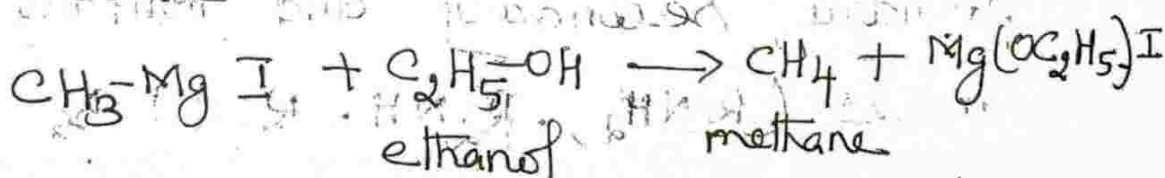 CH₃-Mg I + C₂H₅-OH → CH₄ + Mg(OC₂H₅)I
ethanol methane